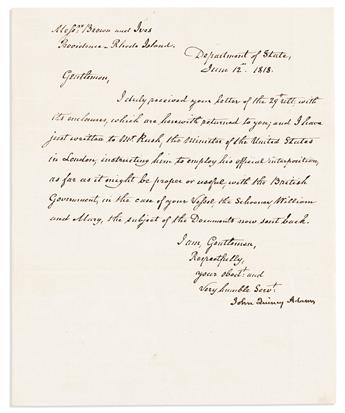 Messrs. Brown and Ives
Providence - Rhode Island.
Department of State,
June 12th. 1818.
Gentlemen,
I duly received your letter of the 29th ult: with
its enclosures, which are herewith returned to you; and I have
just written to Mr Rush, the Minister of the United States
in London, instructing him to employ his official interposition,
as far as it might be proper or useful, with the British
Government, in the case of your Vessel the Schooner William
and Mary, the subject of the Documents now sent back.
I am, Gentlemen,
Respectfully,
your obedt. and
Very humble Servt.
John Quincy Adams.